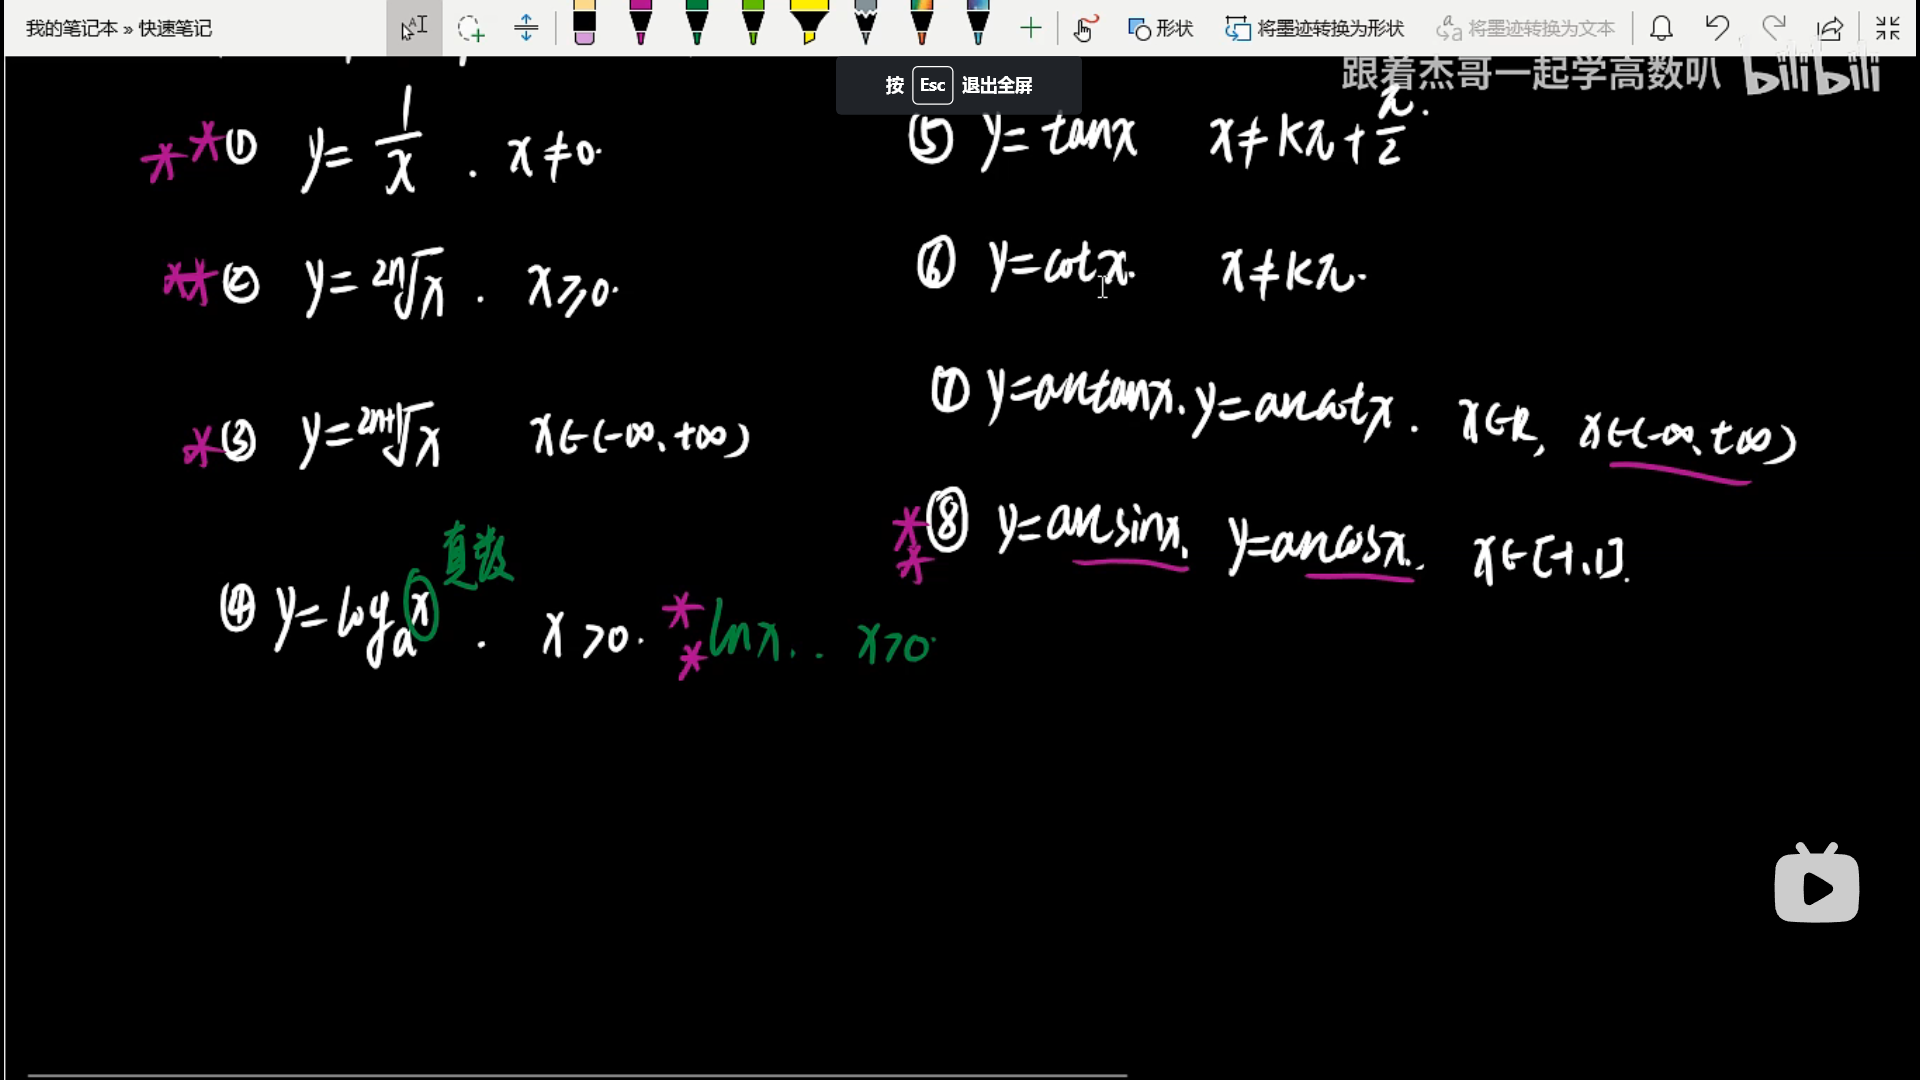 我的笔记本 » 快速笔记
形状
将墨迹转换为形状
将墨迹转换为文本
按 Esc 退出全屏
跟着杰哥一起学高数叭 bilibili
** ① y = 1/x . x≠0.
** ② y = ²ⁿ√x . x≥0.
* ③ y = ²ⁿ⁺¹√x x∈(-∞,+∞)
真数
④ y = logₐx . x>0. ** lnx. . x>0.
⑤ y = tanx x≠kπ+π/2.
⑥ y = cotx. x≠kπ.
⑦ y=arctanx. y=arccotx. x∈R, x∈(-∞,+∞)
** ⑧ y=arcsinx. y=arccosx. x∈[-1,1].